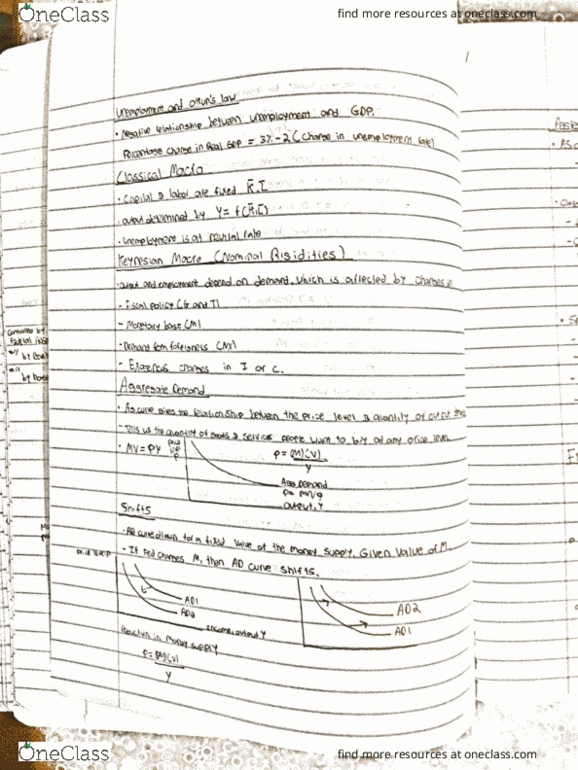 OneClass
find more resources at oneclass.com
Unemployment and okun's law
• Negative relationship between unemployment and GDP.
Percentage change in Real GDP = 3% - 2 (change in unemployment rate)
Classical Macro
• Capital & labor are fixed K̄, L̄
• output determined by Y = f(K̄, L̄)
• Unemployment is at natural rate
Keynesian Macro (Nominal Rigidities)
• Output and employment depend on demand, which is affected by changes in
- Fiscal policy (G and T)
- Monetary base (M)
- Demand from foreigners (NX)
- Exogenous changes in I or C.
Aggregate Demand
• AD curve gives the relationship between the price level & quantity of output
• Tells us the quantity of goods & services people want to buy at any price level
• MV = PY
P
P = (M)(V)
Y
Agg demand
output, Y
Shifts
• AD curve drawn for a fixed value of the money supply. Given value of M.
- If Fed changes M, then AD curve shifts.
AD1
AD2
income, output Y
AD2
AD1
Reduction in Money supply
P = (M)(V)
Y
OneClass
find more resources at oneclass.com